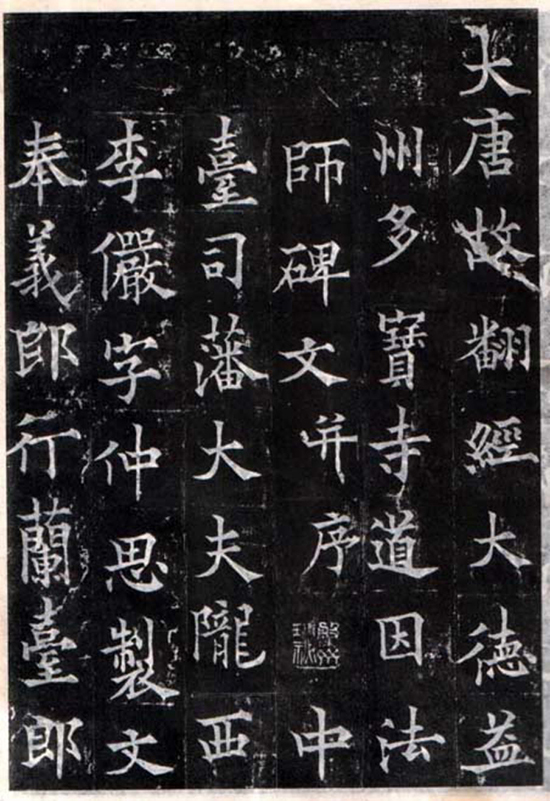 大唐故翻經大德益
州多寶寺道因法
師碑文并序中
臺司藩大夫隴西
李儼字仲思製文
奉義郎行蘭臺郎